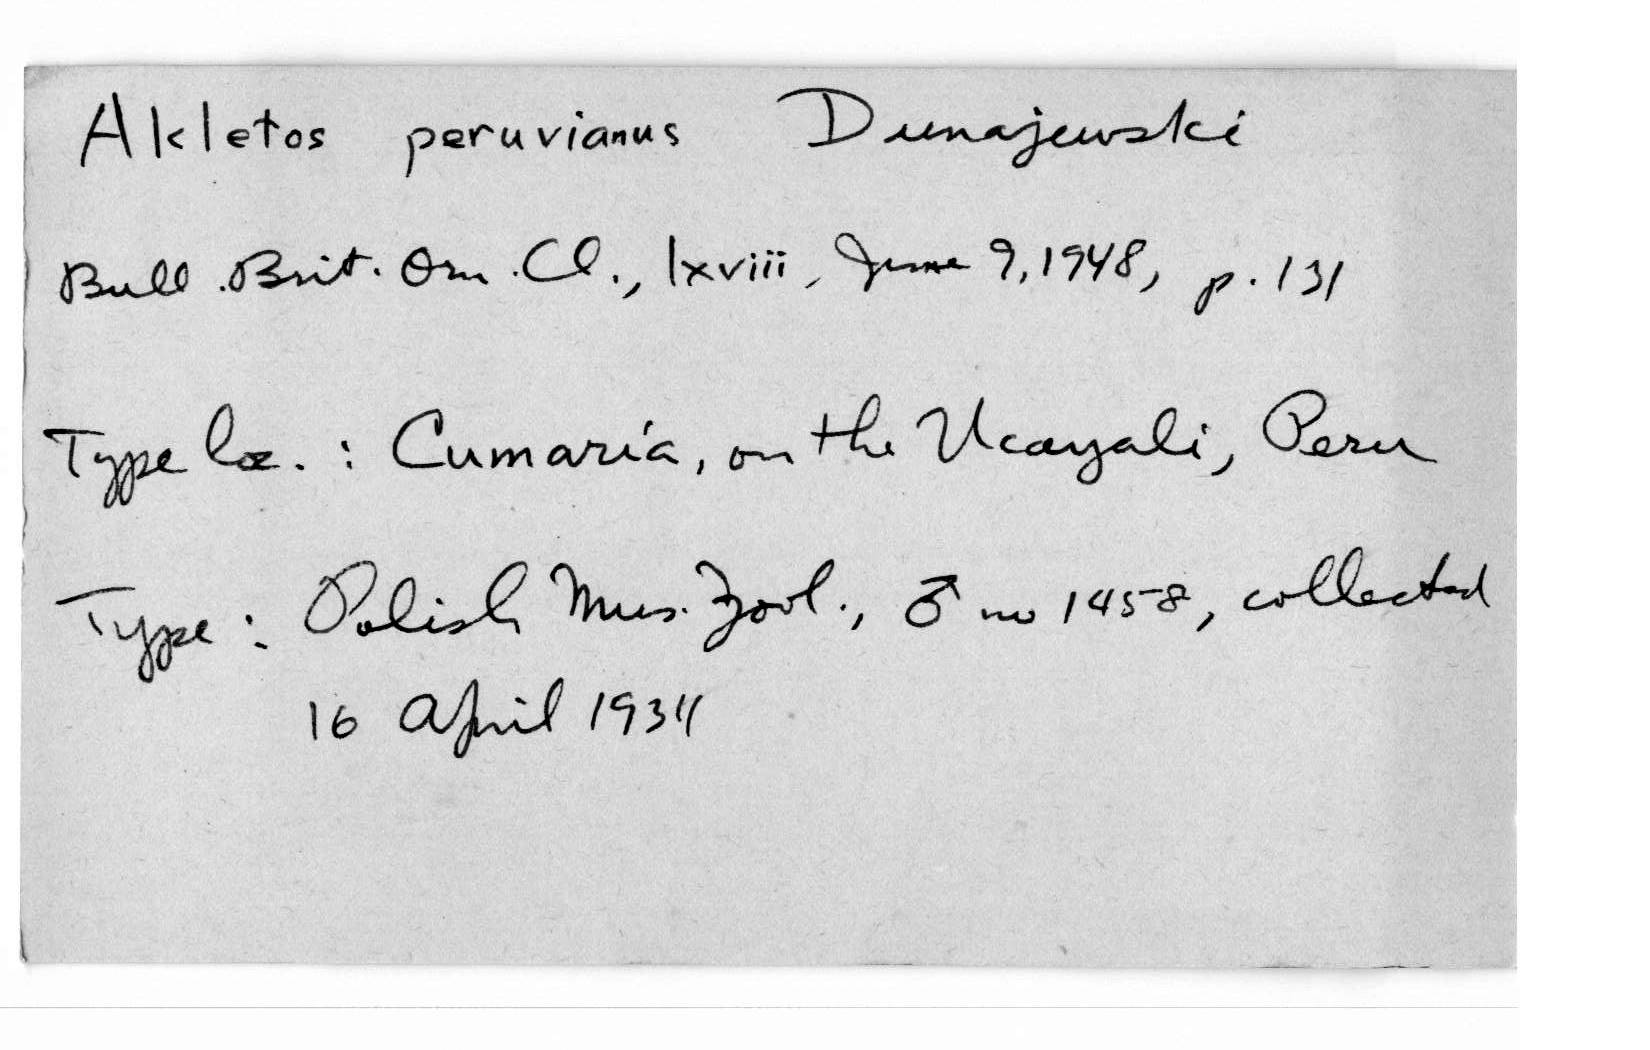 Akletos peruvianus Dunajewski
Bull. Brit. Orn. Cl., lxviii, June 9, 1948, p. 131
Type loc. : Cumaría, on the Ucayali, Peru
Type : Polish Mus. Zool., ♂ no 1458, collected
16 April 1934